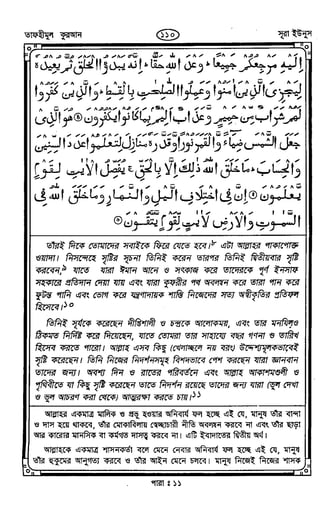 তাফহীমুল কুরআন
১১০
সূরা ইউনুস
إِلَيْهِ مَرْجِعُكُمْ جَمِيعًا ۖ وَعْدَ اللَّهِ حَقًّا ۚ إِنَّهُ يَبْدَؤُا الْخَلْقَ ثُمَّ يُعِيدُهُ
لِيَجْزِيَ الَّذِينَ آمَنُوا وَعَمِلُوا الصَّالِحَاتِ بِالْقِسْطِ ۚ وَالَّذِينَ كَفَرُوا
لَهُمْ شَرَابٌ مِّنْ حَمِيمٍ وَعَذَابٌ أَلِيمٌ بِمَا كَانُوا يَكْفُرُونَ ۞ هُوَ الَّذِي
جَعَلَ الشَّمْسَ ضِيَاءً وَالْقَمَرَ نُورًا وَقَدَّرَهُ مَنَازِلَ لِتَعْلَمُوا عَدَدَ السِّنِينَ
وَالْحِسَابَ ۚ مَا خَلَقَ اللَّهُ ذَٰلِكَ إِلَّا بِالْحَقِّ ۚ يُفَصِّلُ الْآيَاتِ لِقَوْمٍ
يَعْلَمُونَ ۞ إِنَّ فِي اخْتِلَافِ اللَّيْلِ وَالنَّهَارِ وَمَا خَلَقَ اللَّهُ فِي
السَّمَاوَاتِ وَالْأَرْضِ لَآيَاتٍ لِّقَوْمٍ يَتَّقُونَ ۞
তাঁরই দিকে তোমাদের সবাইকে ফিরে যেতে হবে।৮ এটা আল্লাহর পাকাপোক্ত
ওয়াদা। নিসন্দেহে সৃষ্টির সূচনা তিনিই করেন তারপর তিনিই দ্বিতীয়বার সৃষ্টি
করবেন,৯ যাতে যারা ঈমান আনে ও সৎকাজ করে তাদেরকে পূর্ণ ইনসাফ
সহকারে প্রতিদান দেয়া যায় এবং যারা কুফরীর পথ অবলম্বন করে তারা পান করে
ফুটন্ত পানি এবং ভোগ করে যন্ত্রণাদায়ক শাস্তি নিজেদের সত্য অস্বীকৃতির প্রতিফল
হিসেবে।১০
তিনিই সূর্যকে করেছেন দীপ্তিশালী ও চন্দ্রকে আলোকময়, এবং তার মনযিলও
ঠিকমত নির্দিষ্ট করে দিয়েছেন, যাতে তোমরা তার সাহায্যে বছর গণনা ও তারিখ
হিসেব করতে পারো। আল্লাহ এসব কিছু (খেলাচ্ছলে নয় বরং) উদ্দেশ্যমূলকভাবেই
সৃষ্টি করেছেন। তিনি নিজের নিদর্শনসমূহ বিশদভাবে পেশ করছেন যারা জ্ঞানবান
তাদের জন্য। অবশ্য দিন ও রাতের পরিবর্তনে এবং আল্লাহ আকাশমণ্ডলী ও
পৃথিবীতে যা কিছু সৃষ্টি করেছেন তাতে নিদর্শন রয়েছে তাদের জন্য যারা (ভুল দেখা
ও ভুল আচরণ করা থেকে) আত্মরক্ষা করতে চায়।১১
আল্লাহর একমাত্র মালিক ও প্রভু হওয়ার অনিবার্য ফল হচ্ছে এই যে, মানুষ তাঁর বান্দা
ও দাস হয়ে থাকবে, তাঁর মোকাবিলায় স্বেচ্ছাচারী নীতি অবলম্বন করবে না এবং তাঁর ছাড়া
আর কারোর মানসিক বা কর্মগত দাসত্ব করবে না। এটি ইবাদাতের দ্বিতীয় অর্থ।
আল্লাহকে একমাত্র শাসনকর্তা বলে মেনে নেবার অনিবার্য ফল হচ্ছে এই যে, মানুষ
তাঁর হুকুমের আনুগত্য করবে ও তাঁর আইন মেনে চলবে। মানুষ নিজেই নিজের শাসক
পারা : ১১